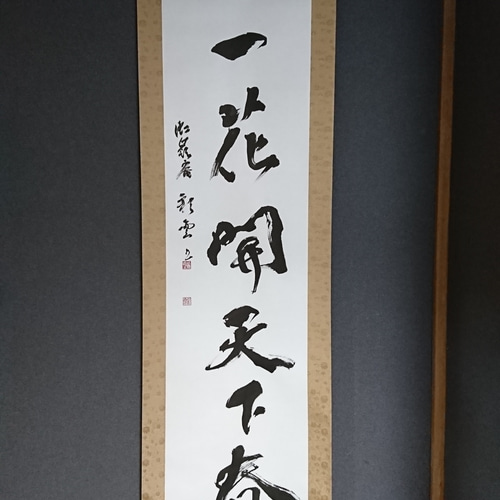 一花開天下春
彩雲